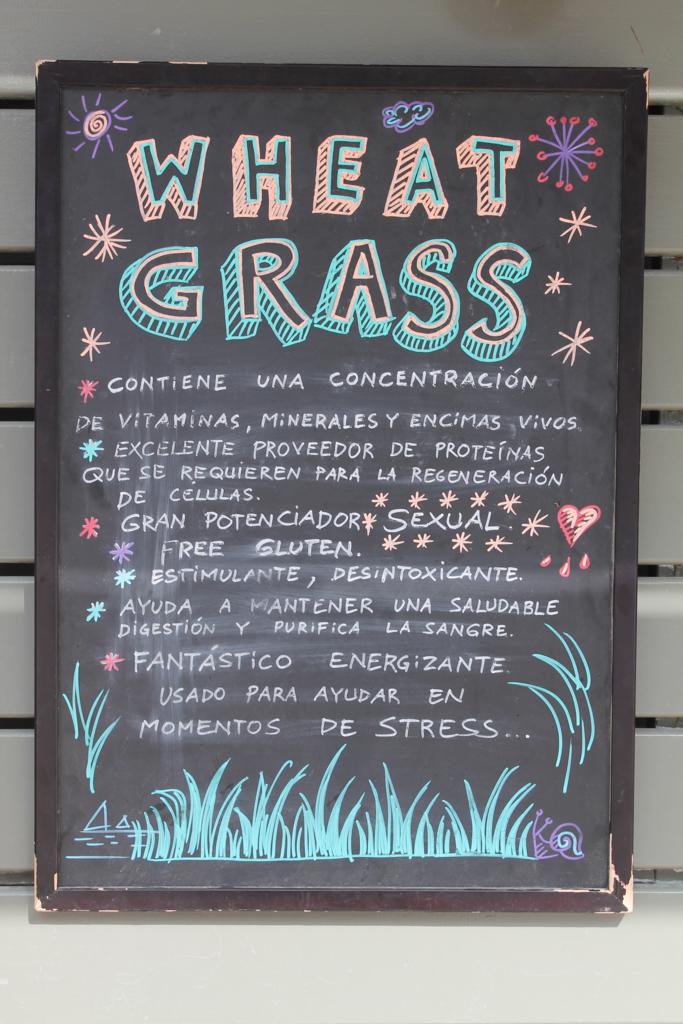 WHEAT
GRASS
* CONTIENE UNA CONCENTRACIÓN
DE VITAMINAS, MINERALES Y ENCIMAS VIVOS
* EXCELENTE PROVEEDOR DE PROTEÍNAS
QUE SE REQUIEREN PARA LA REGENERACIÓN
DE CELULAS.
* GRAN POTENCIADOR * SEXUAL.
* FREE GLUTEN.
* ESTIMULANTE, DESINTOXICANTE.
* AYUDA A MANTENER UNA SALUDABLE
DIGESTIÓN Y PURIFICA LA SANGRE.
* FANTÁSTICO ENERGIZANTE
USADO PARA AYUDAR EN
MOMENTOS DE STRESS...